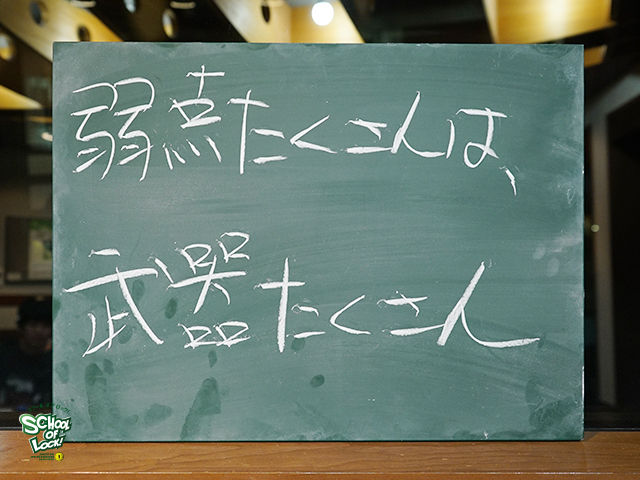 弱点たくさんは、
武器たくさん
SCHOOL
OF
LOCK!